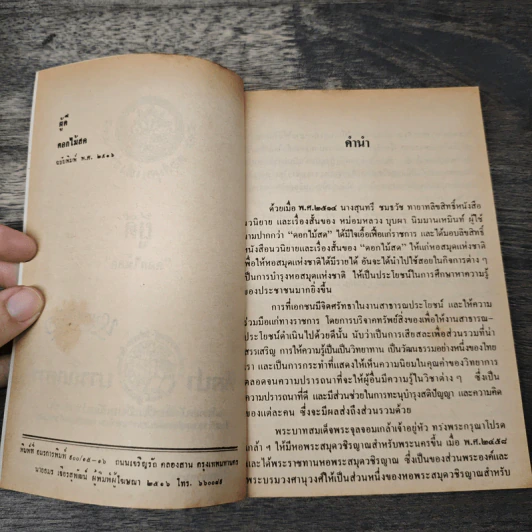 ผู้ดี
ดอกไม้สด
ฉบับพิมพ์ พ.ศ. ๒๕๑๖
พิมพ์ที่ อมรการพิมพ์ ๕๐๐/๑๕-๑๖ ถนนเจริญรัถ คลองสาน กรุงเทพมหานคร
นายอมร เชียรสุพัฒน์ ผู้พิมพ์ผู้โฆษณา ๒๕๑๖ โทร.
คำนำ
ด้วยเมื่อ พ.ศ.๒๕๑๔ นางสุนทรี ชมธวัช ทายาทลิขสิทธิ์หนังสือ
นวนิยาย และเรื่องสั้นของ หม่อมหลวง บุบผา นิมมานเหมินท์ ผู้ใช้
นามปากกาว่า “ดอกไม้สด” ได้มีใจเอื้อเฟื้อแก่ราชการ และได้มอบลิขสิทธิ์
หนังสือนวนิยายและเรื่องสั้นของ “ดอกไม้สด” ให้แก่หอสมุดแห่งชาติ
เพื่อให้หอสมุดแห่งชาติได้มีรายได้ อันจะได้นำไปใช้สอยในกิจการต่าง ๆ
เป็นการบำรุงหอสมุดแห่งชาติ ให้เป็นประโยชน์ในการศึกษาหาความรู้
ของประชาชนมากยิ่งขึ้น
การที่เอกชนมีจิตศรัทธาในงานสาธารณประโยชน์ และให้ความ
ร่วมมือแก่ทางราชการ โดยการบริจาคทรัพย์สิ่งของเพื่อให้งานสาธารณ-
ประโยชน์ดำเนินไปด้วยดีนั้น นับว่าเป็นการเสียสละเพื่อส่วนรวมที่น่า
สรรเสริญ การให้ความรู้เป็นเป็นวิทยาทาน เป็นวัฒนธรรมอย่างหนึ่งของไทย
เรา และเป็นการกระทำที่แสดงให้เห็นความนิยมในคุณค่าของวิทยาการ
ตลอดจนความปรารถนาที่จะให้ผู้อื่นมีความรู้ในวิชาต่าง ๆ ซึ่งเป็น
ความปรารถนาที่ดี และมีส่วนช่วยในการทะนุบำรุงสติปัญญา และความคิด
ของแต่ละคน ซึ่งจะมีผลส่งถึงส่วนรวมด้วย
พระบาทสมเด็จพระจุลจอมเกล้าเจ้าอยู่หัว ทรงพระกรุณาโปรด
เกล้า ฯ ให้มีหอพระสมุดวชิรญาณสำหรับพระนครขึ้น เมื่อ พ.ศ.๒๔๔๘
และได้พระราชทานหอพระสมุดวชิรญาณ ซึ่งเป็นของส่วนพระองค์และ
พระบรมวงศานุวงศ์ให้เป็นส่วนหนึ่งของหอพระสมุดวชิรญาณสำหรับ